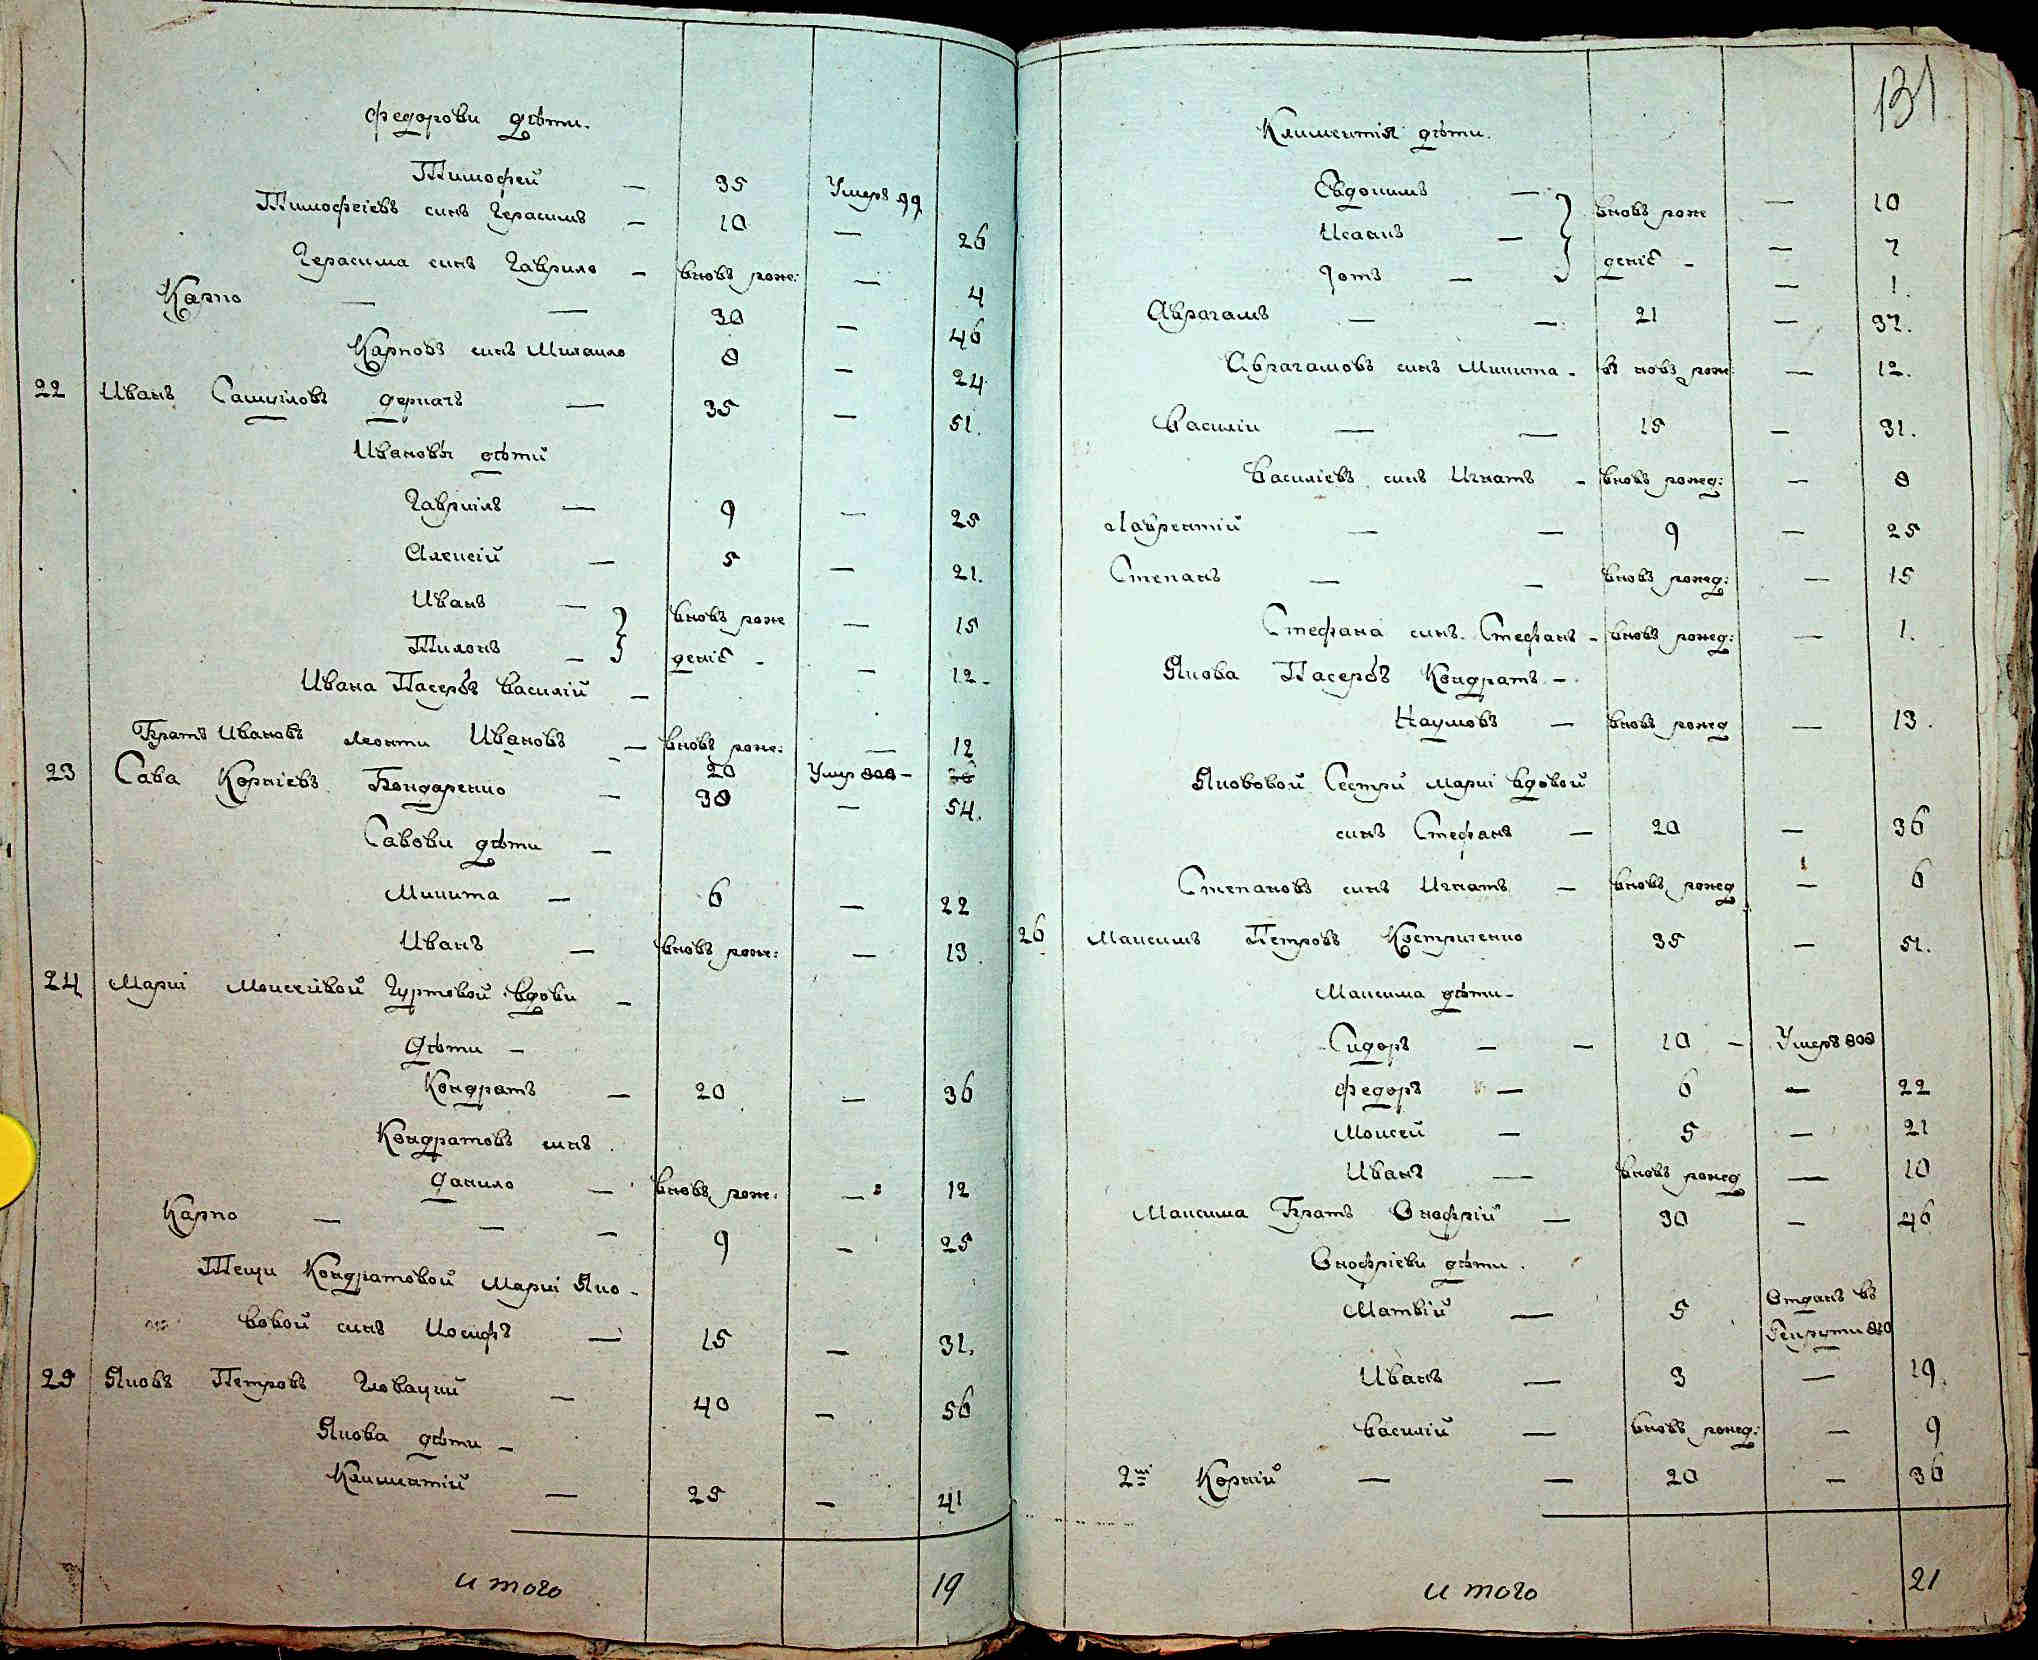 Федорови дѣти.
Тимофей — 35 Умеръ 99
Тимофеіевъ синъ Герасимъ — 10 — 26
Герасима синъ Гаврило — вновь рож: — 4
Карпо — — 30 — 46
Карповъ синъ Михаило 8 — 24.
22 Иванъ Самуіловъ Деркачъ — 35 — 51.
Ивановы дѣти
Гавріилъ — 9 — 25
Алексій — 5 — 21.
Иванъ — вновь рож — 15
Тихонъ — деніе - — 12 -
Ивана Пасербъ Василій —
Братъ Ивановъ Леонти Ивановъ — вновь рож: — 12
20 Умир 808 - 36
23 Сава Корніевъ Бондаренко — 38 — 54.
Савови дѣти —
Микита — 6 — 22
Иванъ — вновь рож: — 13.
24 Маріи Моисеівой Гуртовой вдови —
Дѣти —
Кондратъ — 20 — 36
Кондратовъ синъ
Данило — вновь рож: — 12
Карпо — — — 9 — 25
Тещи Кондратовой Маріи Яко-
вовой синъ Иосифъ — 15 — 31.
25 Яковъ Петровъ Гловацкий — 40 — 56
Якова дѣти —
Климентій — 25 — 41
и того 19
131
Климентія дѣти.
Евдокимъ — вновь рож — 10
Исаакъ — деніе - — 7
Іотъ — — 1.
Аврагамъ — — 21 — 37.
Аврагамовъ синъ Микита - в новь рож: — 12.
Василіи — — 15 — 31.
Василіевъ синъ Игнатъ - вновь рожед: — 8
Лаврентій — — 9 — 25
Степанъ — — вновь рожед: — 15
Стефана синъ Стефанъ - вновь рожед: — 1.
Якова Пасербъ Кондратъ —
Наумовъ — вновь рожед — 13.
Яковової Сестри Маріи вдовой
синъ Стефанъ — 20 — 36
Степановъ синъ Игнатъ — вновь рожед — 6
26 Максимъ Петровъ Костриченко 35 — 51.
Максима дѣти -
Сидоръ — — 10 — Умеръ 808
Федоръ — 6 — 22
Моисей — 5 — 21
Иванъ — вновь рожед — 10
Максима Братъ Онофрій — 30 — 46
Онофріеви дѣти.
Матвій — 5 Отданъ въ
Рекрути 810
Иванъ — 3 — 19.
Василій — вновь рожед: — 9
2й Корній — — 20 — 36
и того 21